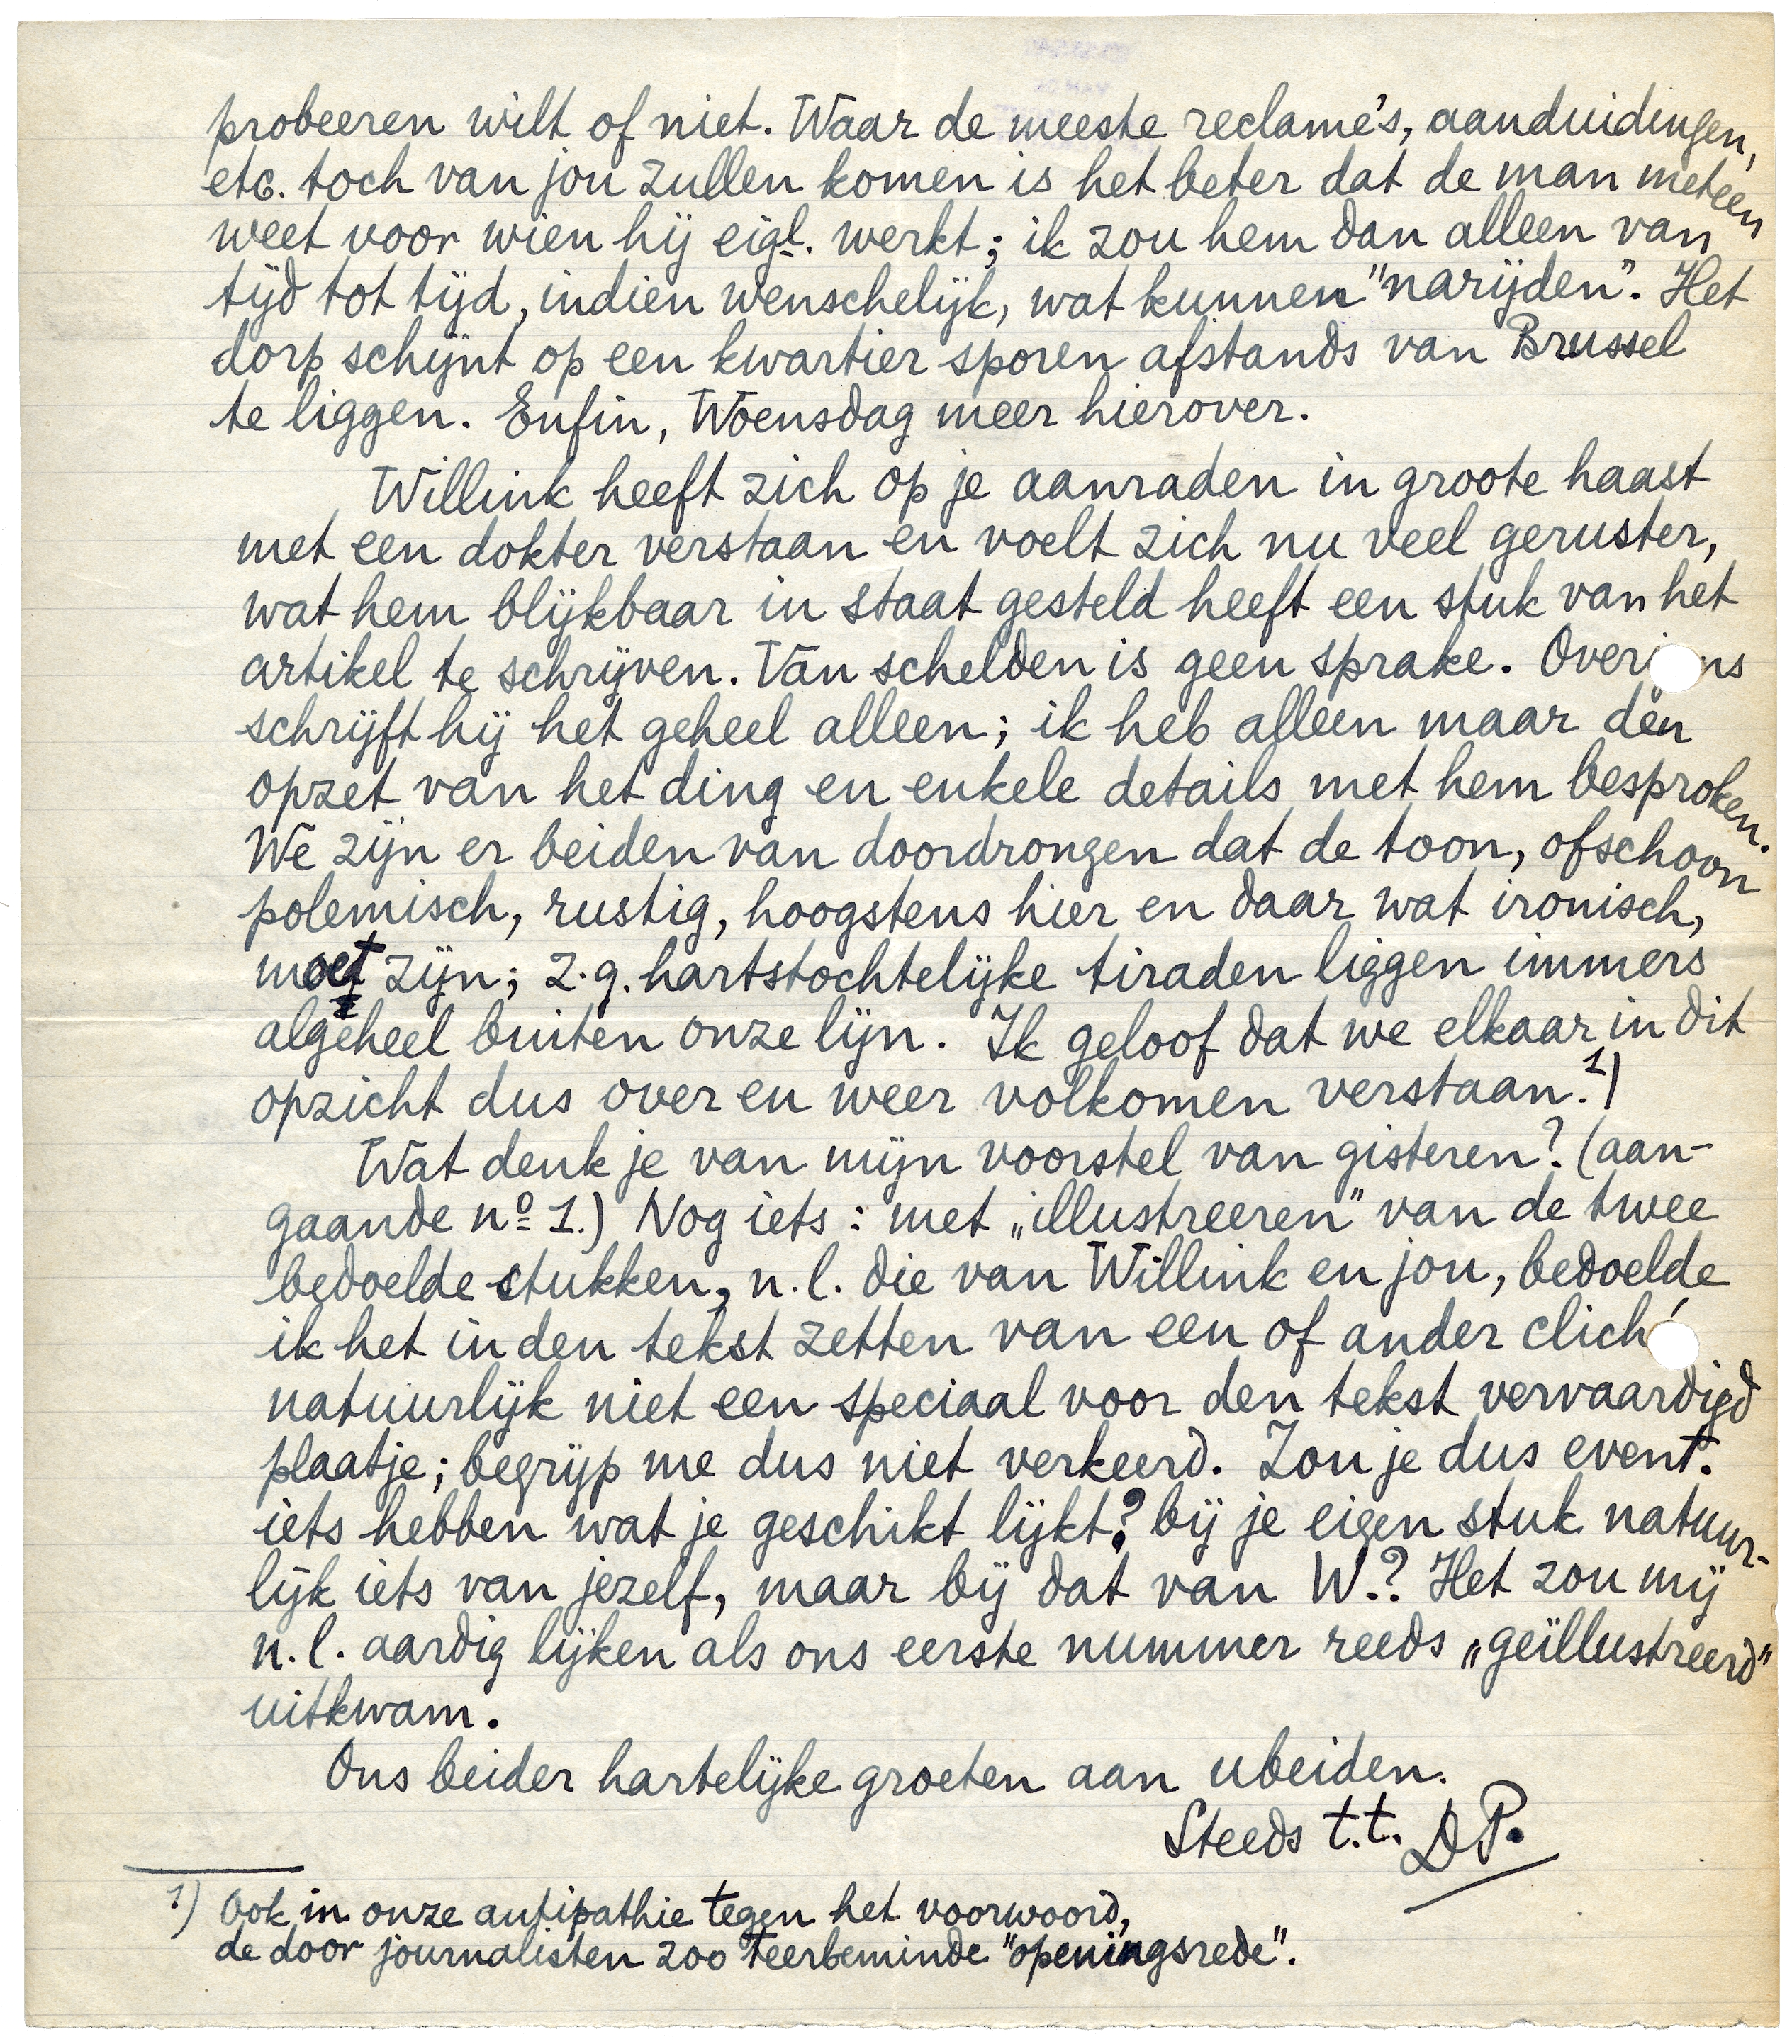 probeeren wilt of niet. Waar de meeste reclame's, aanduidingen,
etc. toch van jou zullen komen is het beter dat de man meteen
weet voor wien hij eigl. werkt; ik zou hem dan alleen van
tijd tot tijd, indien wenschelijk, wat kunnen "narijden". Het
dorp schijnt op een kwartier sporen afstands van Brussel
te liggen. Enfin, Woensdag meer hierover.
Willink heeft zich op je aanraden in groote haast
met een dokter verstaan en voelt zich nu veel geruster,
wat hem blijkbaar in staat gesteld heeft een stuk van het
artikel te schrijven. Van schelden is geen sprake. Overi ns
schrijft hij het geheel alleen; ik heb alleen maar den
opzet van het ding en enkele details met hem besproken.
We zijn er beiden van doordrongen dat de toon, ofschoon
polemisch, rustig, hoogstens hier en daar wat ironisch,
moet zijn; z.g. hartstochtelijke tiraden liggen immers
algeheel buiten onze lijn. Ik geloof dat we elkaar in dit
opzicht dus over en weer volkomen verstaan.¹)
Wat denk je van mijn voorstel van gisteren? (aan-
gaande nº 1.) Nog iets: met „illustreeren" van de twee
bedoelde stukken, n.l. die van Willink en jou, bedoelde
ik het in den tekst zetten van een of ander cliché
natuurlijk niet een speciaal voor den tekst vervaardigd
plaatje; begrijp me dus niet verkeerd. Zou je dus event.
iets hebben wat je geschikt lijkt? bij je eigen stuk natuur-
lijk iets van jezelf, maar bij dat van W.? Het zou mij
n.l. aardig lijken als ons eerste nummer reeds „geïllustreerd"
uitkwam.
Ons beider hartelijke groeten aan u beiden.
Steeds t.t. DP.
1) Ook in onze antipathie tegen het voorwoord,
de door journalisten zoo teerbeminde "openingsrede".